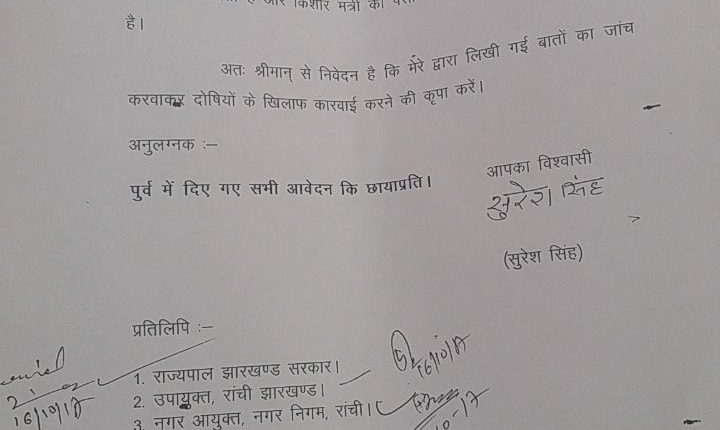 है।
अतः श्रीमान् से निवेदन है कि मेरे द्वारा लिखी गई बातों का जांच
करवाकर दोषियों के खिलाफ कारवाई करने की कृपा करें।
अनुलग्नक :–
पुर्व में दिए गए सभी आवेदन कि छायाप्रति।
आपका विश्वासी
सुरेश सिंह
(सुरेश सिंह)
प्रतिलिपि :–
1. राज्यपाल झारखण्ड सरकार।
2. उपायुक्त, रांची झारखण्ड।
3. नगर आयुक्त, नगर निगम, रांची।
16/10/17
16/10/17